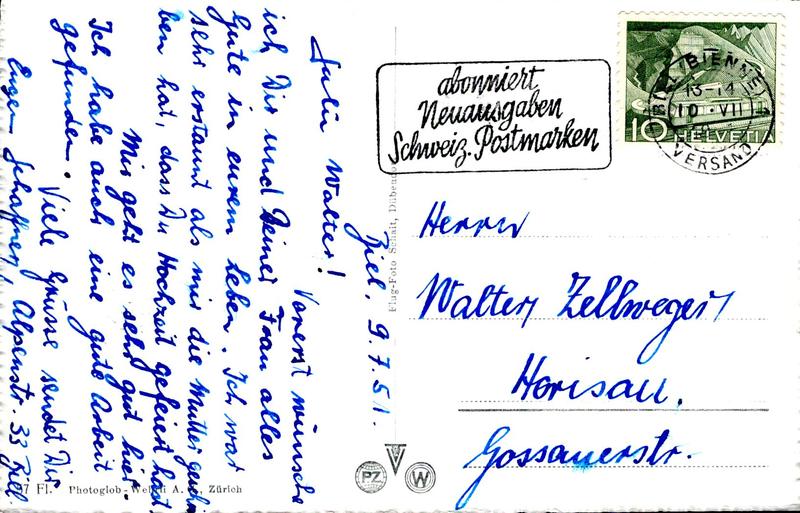 Biel, 9.7.51.
Salü Walter!
Vorerst wünsche
ich Dir und Deiner Frau alles
Gute in eurem Leben. Ich war
sehr erstaunt als mir die Mutter geschrie
ben hat, dass Du Hochzeit gefeiert hast.
Mir geht es sehr gut hier
Ich habe auch eine gute Arbeit
gefunden. Viele Grüsse sendet Dir
Eugen Schaffner, Alpenstr. 33 Biel
abonniert
Neuausgaben
Schweiz. Postmarken
BIEL (BIENNE)
13-14
10.VII
VERSAND
10 HELVETIA
Herrn
Walter Zellweger
Herisau.
Gossauerstr.
Flug-Foto Schait, Dübendorf
PZ
W
7 Fl. Photoglob-Wehrli A. Zürich